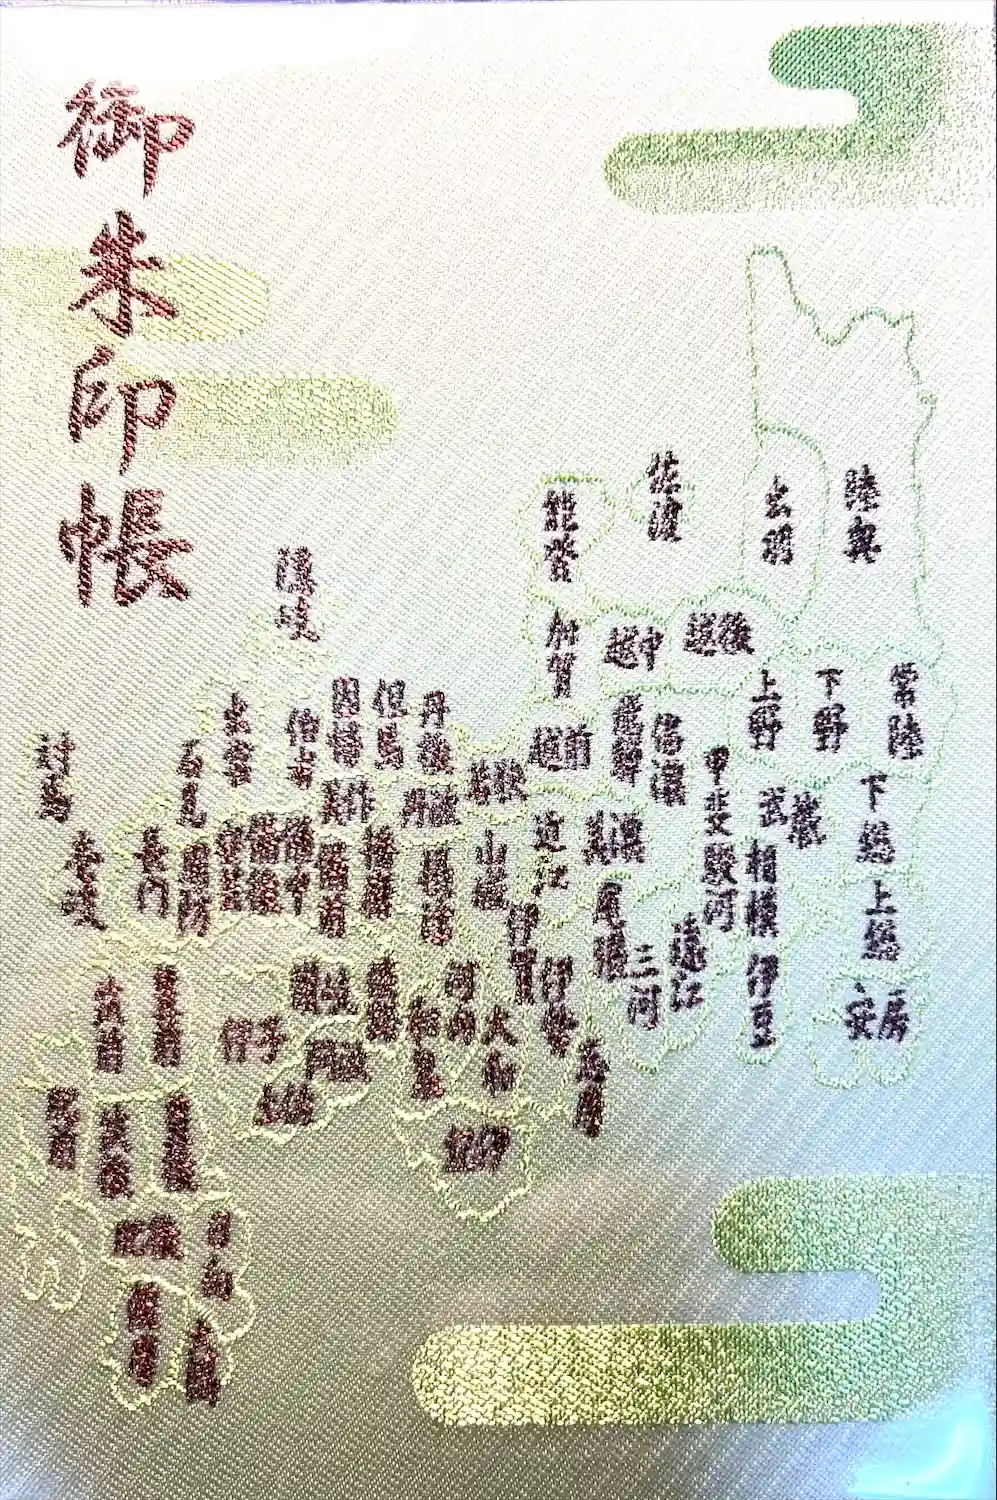 御朱印帳
陸奥
出羽
佐渡
能登
加賀
越中
越後
常陸
下野
上野
越前
飛騨
信濃
甲斐
武蔵
下総
上総
安房
相模
伊豆
駿河
遠江
三河
尾張
美濃
近江
若狭
丹後
丹波
但馬
因幡
伯耆
出雲
隠岐
石見
美作
播磨
備前
備中
備後
安芸
周防
長門
山城
摂津
伊賀
伊勢
志摩
大和
河内
和泉
紀伊
淡路
讃岐
阿波
伊予
土佐
対馬
壱岐
筑前
豊前
肥前
筑後
豊後
肥後
日向
薩摩
大隅